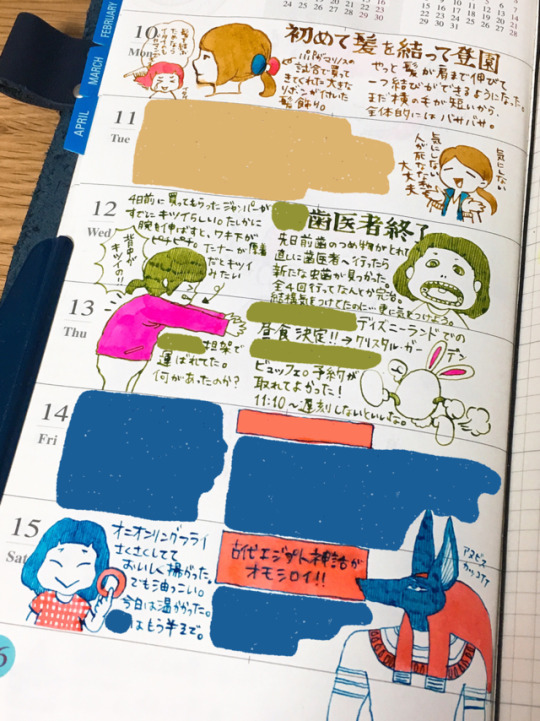 FEBRUARY
MARCH
APRIL
10
Mon
初めて髪を結って登園
やっと髪が肩まで伸びて
一つ結びができるようになった。
まだ横の毛が短いから、
全体的にはバサバサ。
試合で買って
きてくれた大きな
リボンが付いた
髪飾り。
11
Tue
気にしない
気にしない
人が死ななきゃ
大丈夫
12
Wed
4日前に買ってもらったジャンパーが
すでにキツイらしい。たしかに
腕を伸ばすと、ワキ下が
ピチピチ。
インナーが厚着
だとキツイ
みたい
背中が
キツイの!!
歯医者終了
先日前歯のつめ物がとれ
直しに歯医者へ行ったら
新たな虫歯が見つかった。
全4回行ってなんとか完治。
結構気をつけてたのに…更に気をつけよう。
13
Thu
担架で
運ばれてた。
何があったのか?
ディズニーランドでの
昼食決定!!→クリスタルガーデン
ビュッフェの予約が
取れてよかった!
11:10〜遅刻しないといいな。
14
Fri
15
Sat
オニオンリングフライ
さくさくしてて
おいしく揚がった。
でも油っこい。
今日は温かかった。
はもう半まで。
古代エジプト神話が
オモシロイ!!
アヌビス
カッコイイ
6